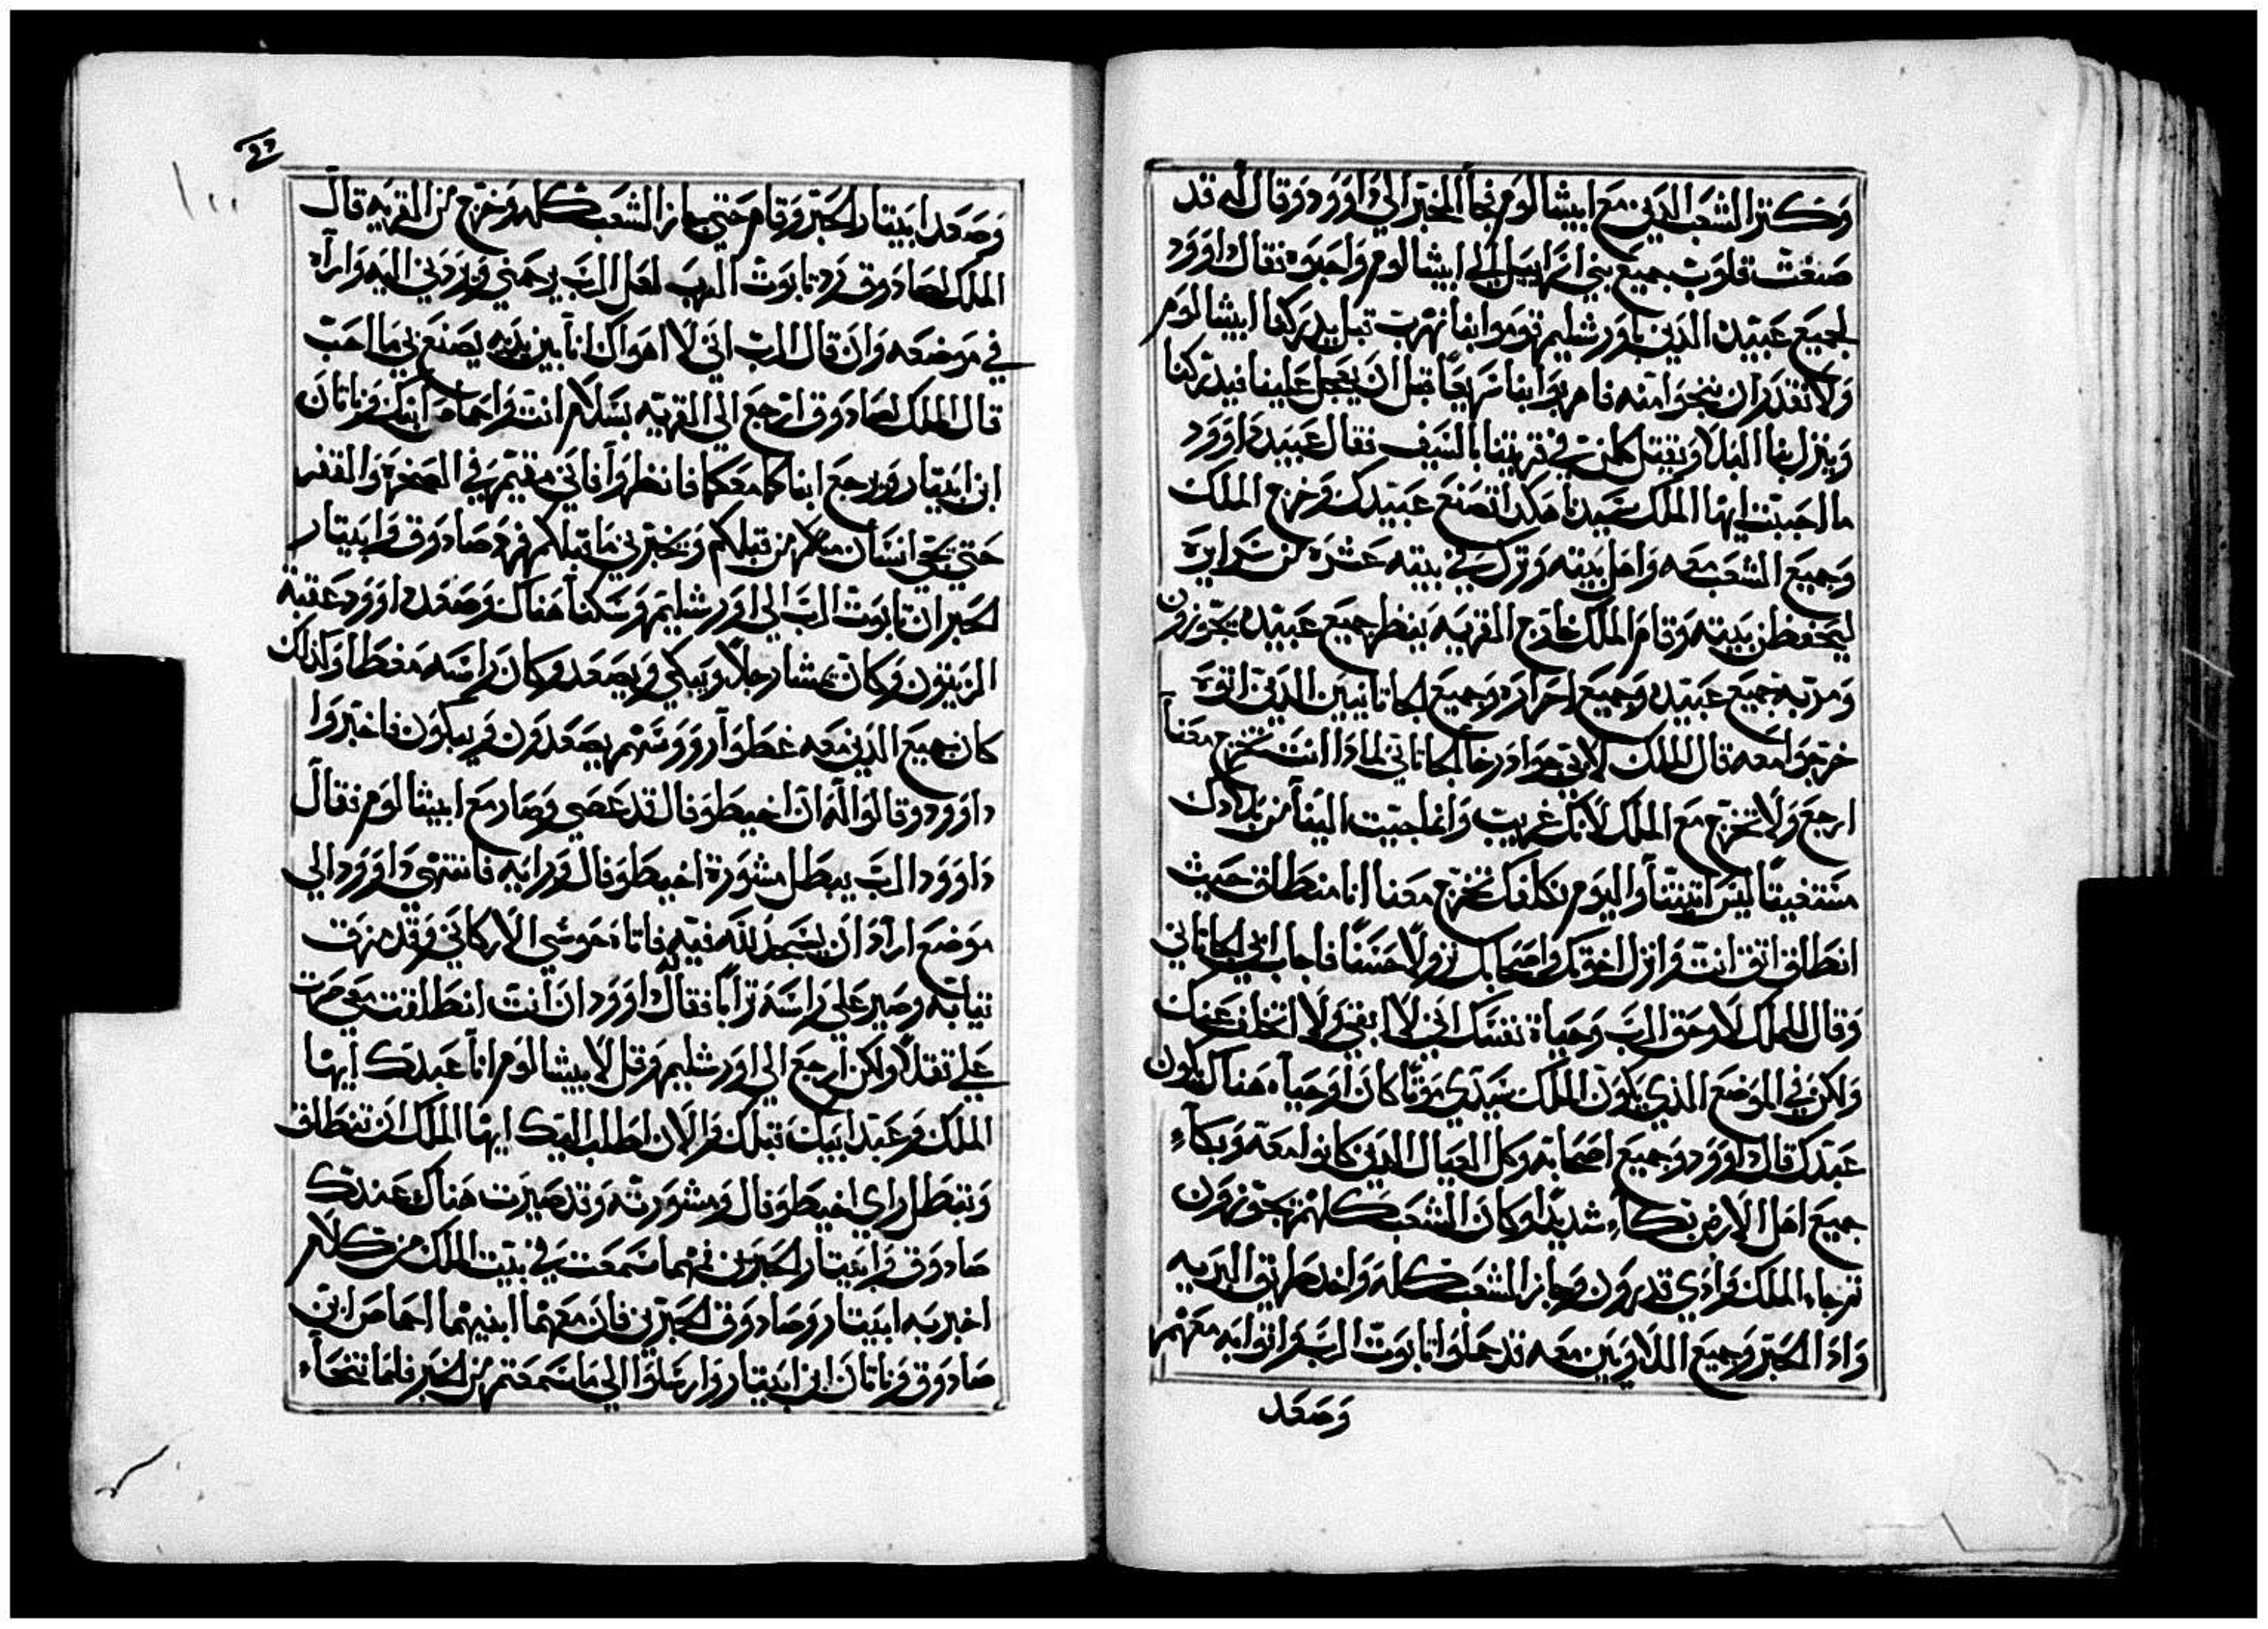 وكثر الشعب الدين مع ابيشالوم فجا المخبر الي داوود وقال له قد
صنعت قلوب جميع بني اسراييل الي ابيشالوم واحبوه فقال داوود
لجميع عبيده الدين باورشليم قوموا بنا نهرب قبل يدركنا ابيشالوم
ولا نقدر ان ننجوا منه فاهربوا بنا سريعا قبل ان يعجل علينا فيدركنا
وينزل بنا البلا ويقتل كلمن في قريتنا بالسيف فقال عبيد داوود
ما احببت ايها الملك سيدنا هكدا تصنع عبيدك وخرج الملك
وجميع الشعب معه واهل بيته وترك في بيته عشره من سرايره
ليحفظن بيته وقام الملك خارج القريه ينظر جميع عبيده يجوزون
ومر به جميع عبيده وجميع احراره وجميع الجاتانيين الدين اتوه
خرجوا معه قال الملك لاتي جوادرخا الجاتاني لمادا انت تخرج معنا
ارجع ولا تخرج مع الملك لانك غريب وانما جيت الينا من بلادك
مستغيقا ليس اتيتنا واليوم نكلفك تخرج معنا انا منطلق حيث
انطلق اتق انت وانزل اخوتك واصحابك نزولا حسنا فاجاب اتي الجاتاني
وقال للملك لا وحق الرب وحياة نفسك اني لا ابقي ولا اتخلف عنك
ولكن في الموضع الذي يكون الملك سيدي موتا كان او حياه هناك يكون
عبدك قال داوود وجميع اصحابه وكل العيال الدين كانوا معه وبكاء
جميع اهل الارض بكاء شديدا وكان الشعب كلهم يجوزون
ثم جاء الملك وادي قدرون وجاز الشعب كله واخد طريق البريه
وادا الحبر وجميع اللاويين معه قد حملوا تابوت الرب واتوا به معهم
وصعد
وصعد ابيتار الحبر وقام حتي جاز الشعب كله وخرج من القريه قال
الملك لصادوق رد تابوت الرب لعل الرب يرحمني ويردني اليه واراه
في موضعه وان قال الرب اني لا اهواك انا بين يديه يصنع بي ما احب
قال الملك لصادوق ارجع الي القريه بسلام انت واحماص ابنك وناتان
ابن ابيتار ويرجع ابناكما معكما فانظروا فاني مقيم في الصخره والقفر
حتي يجي انسان منكم من قبلكم ويخبرني ما قبلكم فرد صادوق وابيتار
الحبران تابوت الرب الي اورشليم وسكنا هناك وصعد داوود عقبة
الزيتون وكان يمشا رجلا ويبكي ويصعد وكان راسه مغطا وادلك
كان جميع الدين معه غطوا رووسهم يصعدون ويبكون فاخبروا
داوود وقالوا له ان اخيطوفال قد عصي وصار مع ابيشالوم فقال
داوود الرب يبطل مشورة اخيطوفال ورايه فانتهي داوود الي
موضع اراد ان يسجد لله فيه فاتاه حوشي الاركاني وقد مزق
تيابه وصير علي راسه ترابا فقال له داوود ان انت انطلقت معي صرت
علي تقلا ولكن ارجع الي اورشليم وقل لابيشالوم انا عبدك ايها
الملك وعبد ابيك قبلك والان اطلب اليك ايها الملك ان تنطلق
وتبطل راي اخيطوفال ومشورته وقد صيرت هناك عندك
صادوق وابيتار الحبرين فمهما سمعت في بيت الملك من كلام
اخبر به ابيتار وصادوق الحبرين فان معهما ابنيهما احماص ابن
صادوق وناتان ابن ابيتار وارسلوا الي ما سمعتم من الخبر فلما نتحاء